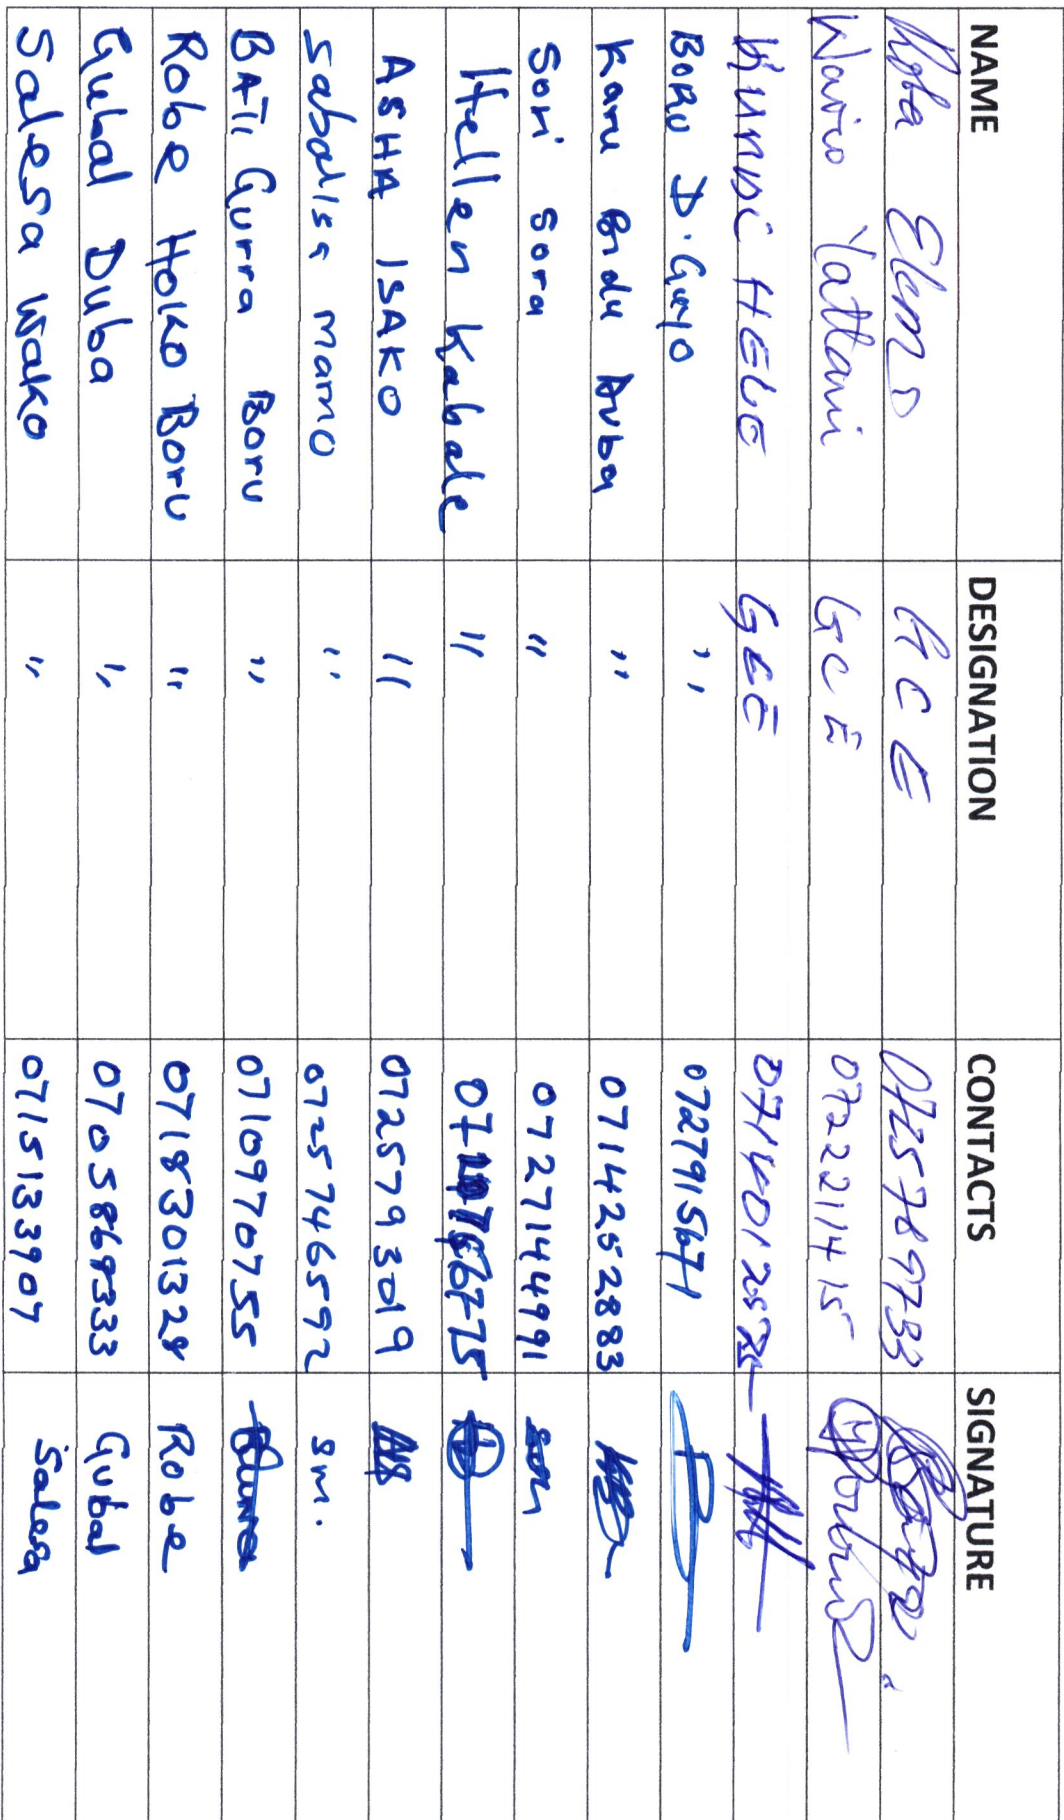 NAME DESIGNATION CONTACTS SIGNATURE
Roba Elema GCE 0725789733
Wario Yattani GCE 0722211415
HELE GCE
BORU D. Guyo " 0727915671
Karu Duba " 0714252883
Sori Sora " 0727144991
Hellen Kabale "
ASHA ISAKO " 0725793019
Sabdisa mamo " 0725746592 Sm.
BATI Gurra Boru " 0710970755
Robe Holko Boru " 0718301329 Robe
Gubal Duba " 0705869333 Gubal
Salesa Wako " 0715133907 Salesa